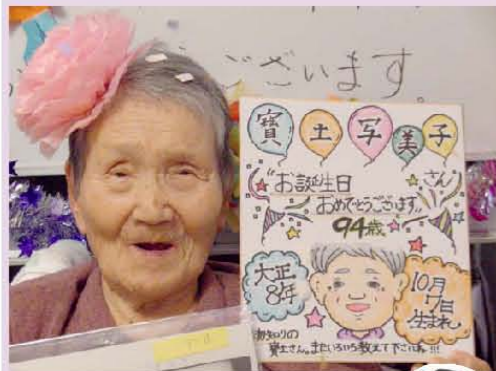 ございます。
寳土写美子
さん
お誕生日
おめでとうございます。
94歳
大正
8年
10月
7日
生まれ
物知りの
寳土さん。またいろいろ教えて下さいね!!!